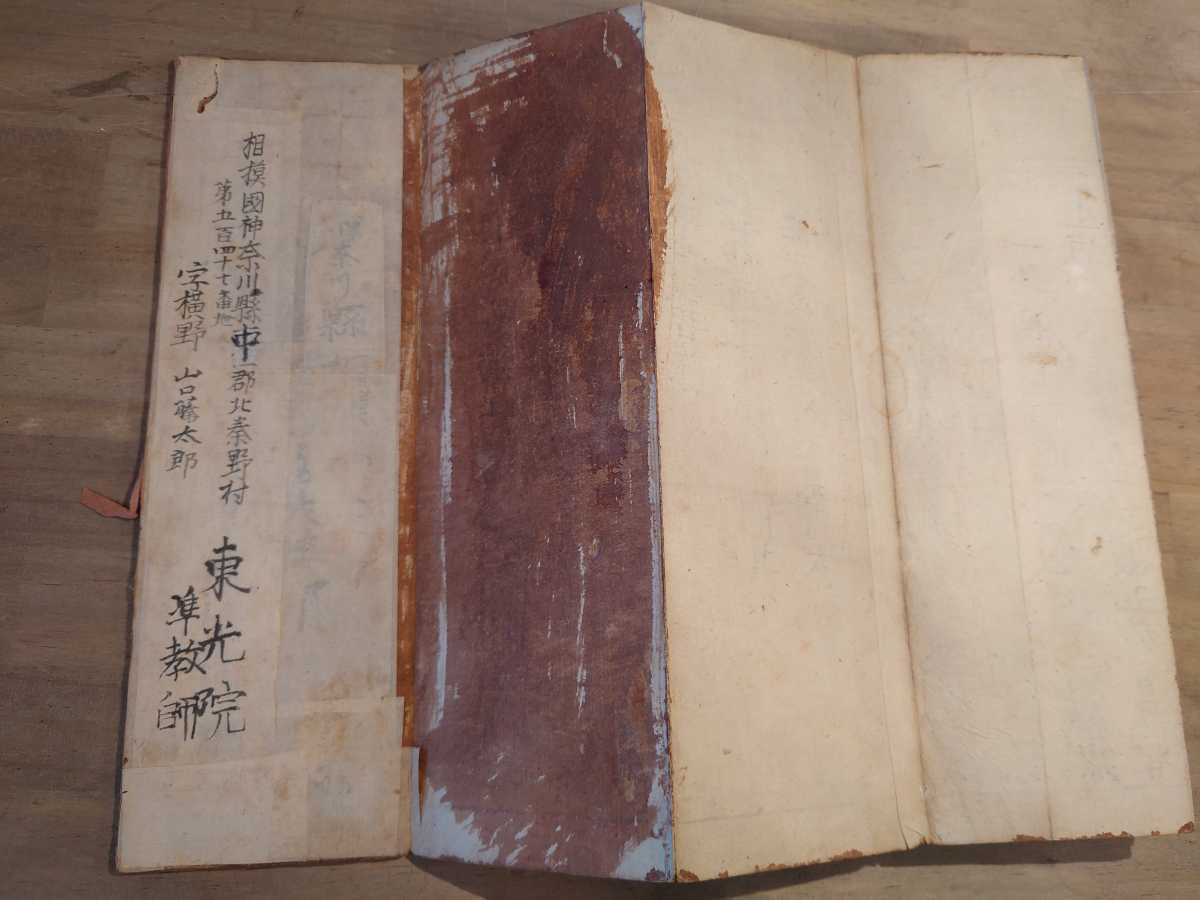 相摸國神奈川縣中郡北秦野村
第五百四十七番地
字横野 山口藤太郎
東光院
準教師